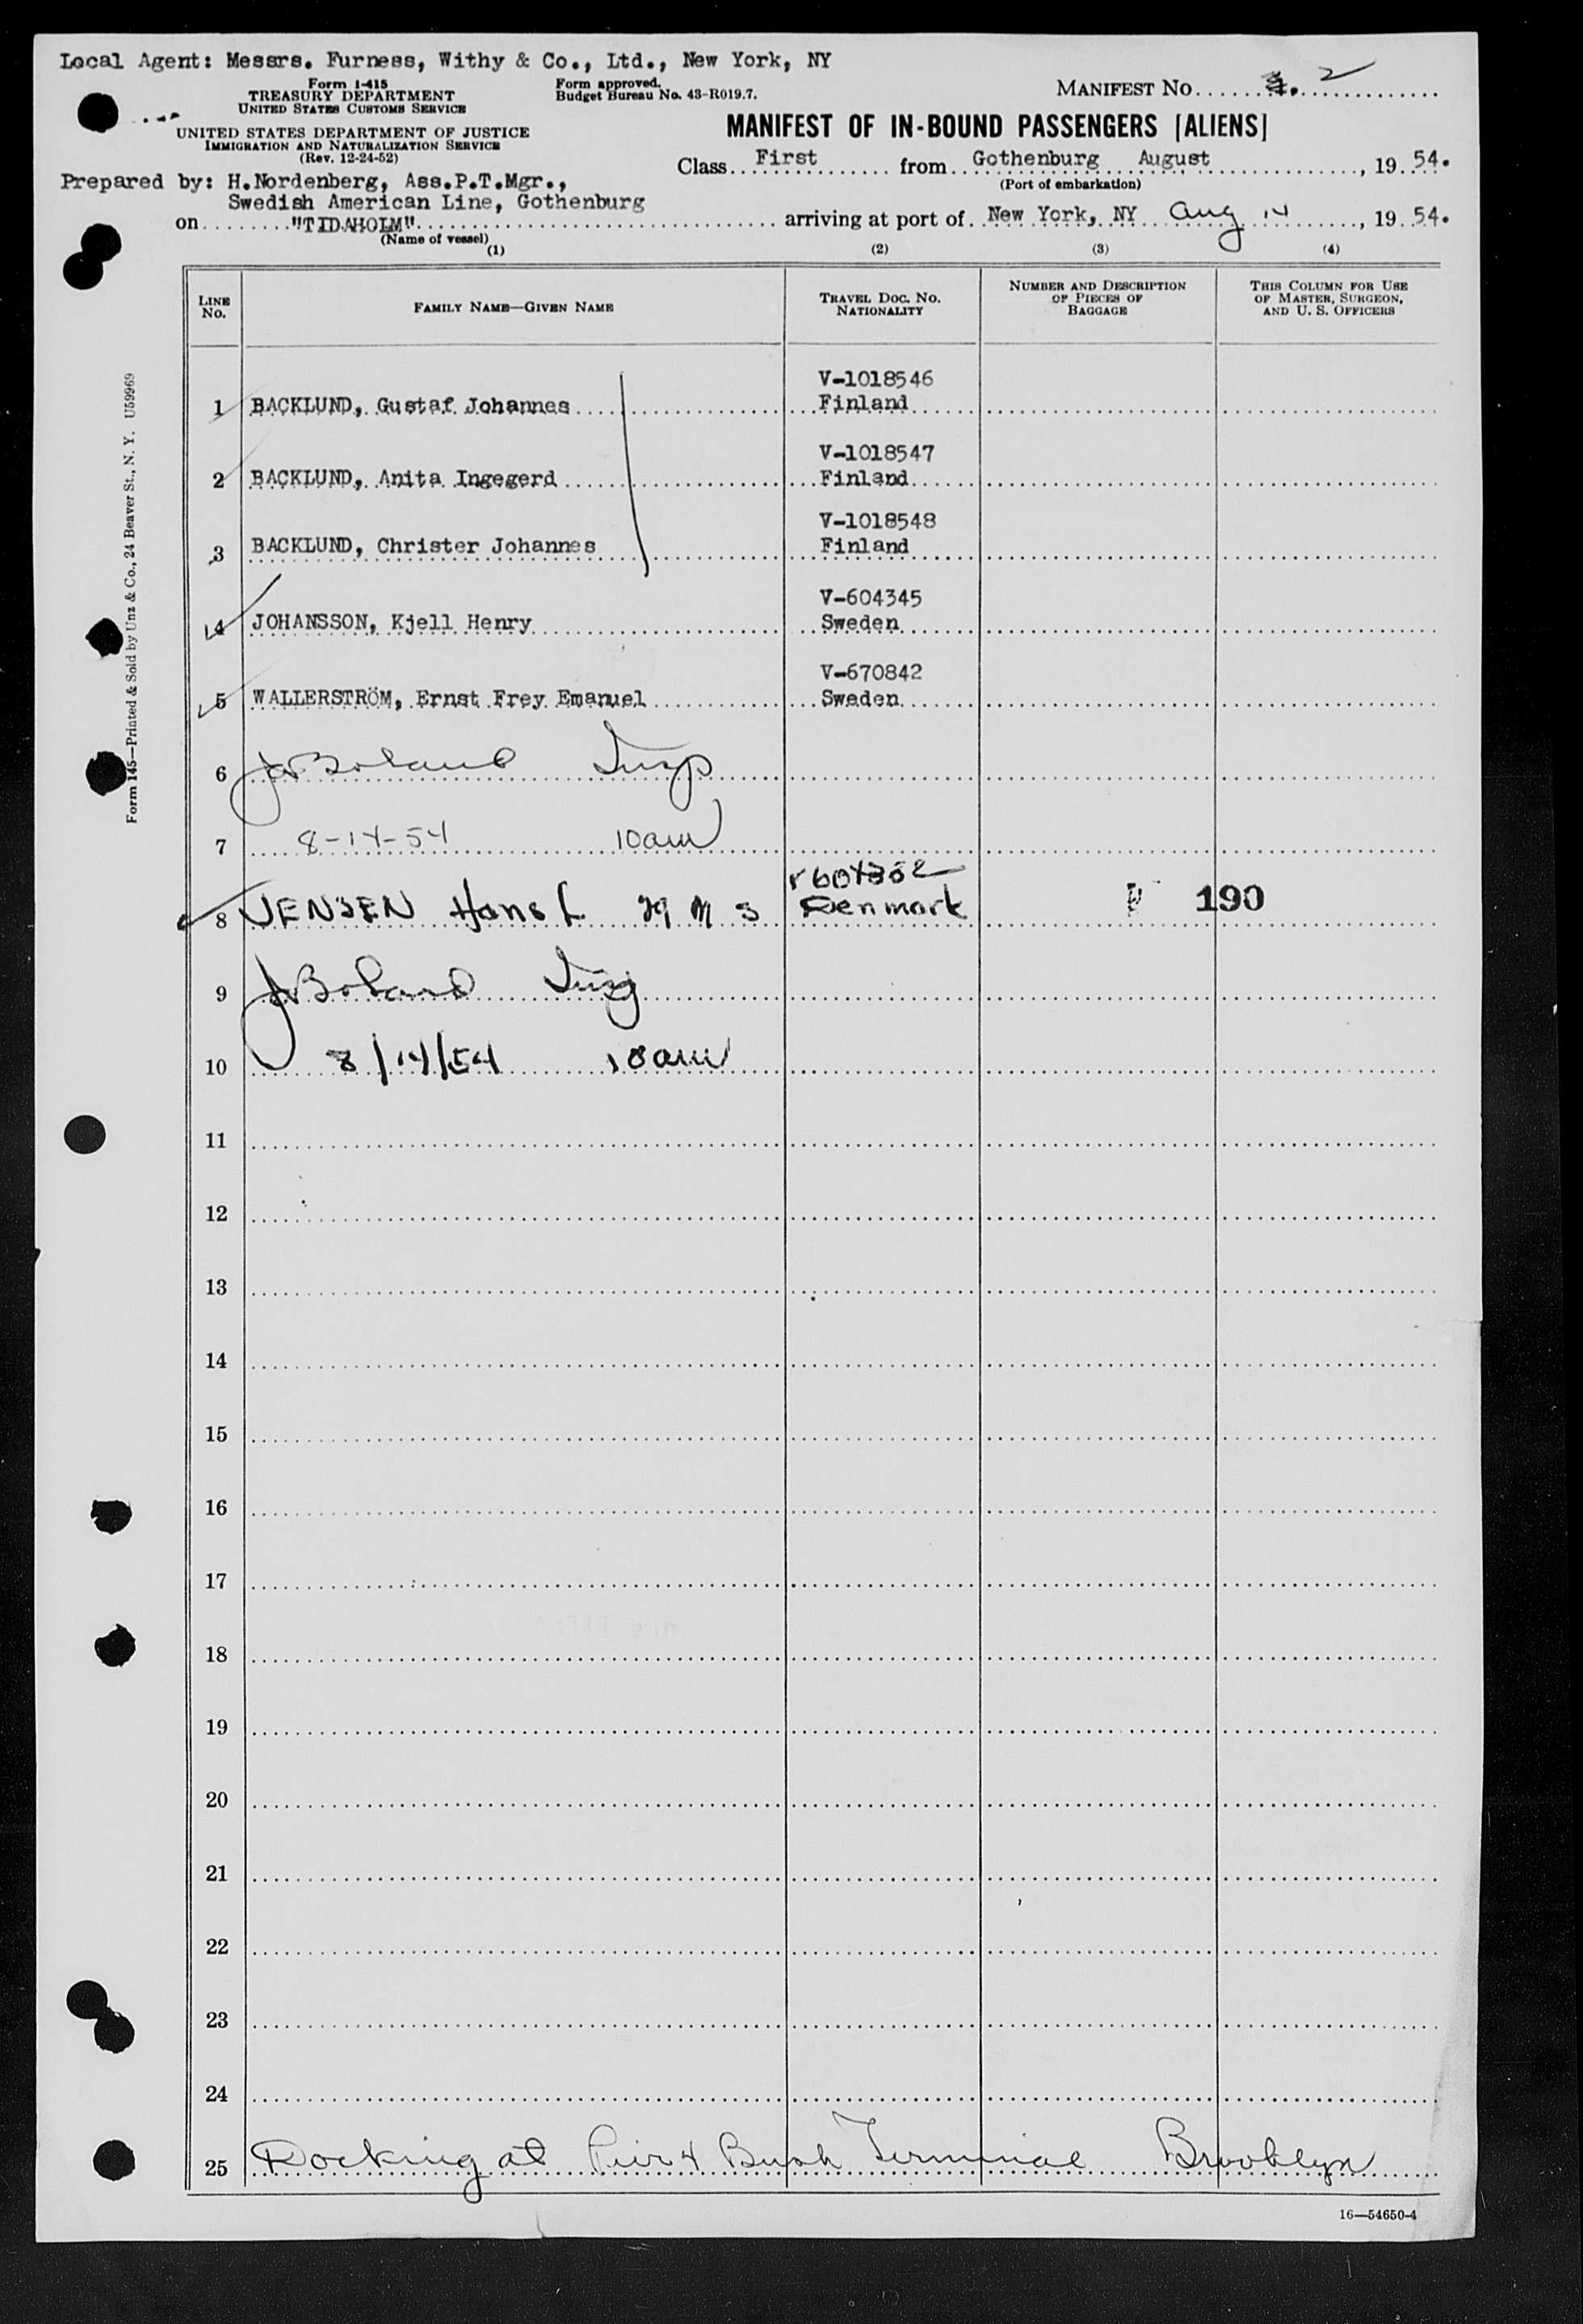 Local Agent: Messrs. Furness, Withy & Co., Ltd., New York, NY
Form I-415
TREASURY DEPARTMENT
UNITED STATES CUSTOMS SERVICE
Form approved.
Budget Bureau No. 43-R019.7.
MANIFEST NO. 2
UNITED STATES DEPARTMENT OF JUSTICE
IMMIGRATION AND NATURALIZATION SERVICE
(Rev. 12-24-52)
MANIFEST OF IN-BOUND PASSENGERS [ALIENS]
Class First from Gothenburg August, 19 54.
(Port of embarkation)
Prepared by: H.Nordenberg, Ass.P.T.Mgr.,
Swedish American Line, Gothenburg
on "TIDAHOLM" arriving at port of New York, NY Aug 14, 19 54.
(Name of vessel)
(1) (2) (3) (4)
LINE NO.
FAMILY NAME—GIVEN NAME
TRAVEL DOC. NO. NATIONALITY
NUMBER AND DESCRIPTION OF PIECES OF BAGGAGE
THIS COLUMN FOR USE OF MASTER, SURGEON, AND U. S. OFFICERS
V-1018546
1 BACKLUND, Gustaf Johannes Finland
V-1018547
2 BACKLUND, Anita Ingegerd Finland
V-1018548
3 BACKLUND, Christer Johannes Finland
V-604345
4 JOHANSSON, Kjell Henry Sweden
V-670842
5 WALLERSTRÖM, Ernst Frey Emanuel Sweden
6 Boland Insp
7 8-14-54 10am
8 JENSEN Hans Denmark 190
9 Boland Insp
10 8/14/54 10am
11
12
13
14
15
16
17
18
19
20
21
22
23
24
25 Docking at Pier 4 Bush Terminal Brooklyn
16—54650-4
Form 145—Printed & Sold by Unz & Co., 24 Beaver St., N. Y. U59969